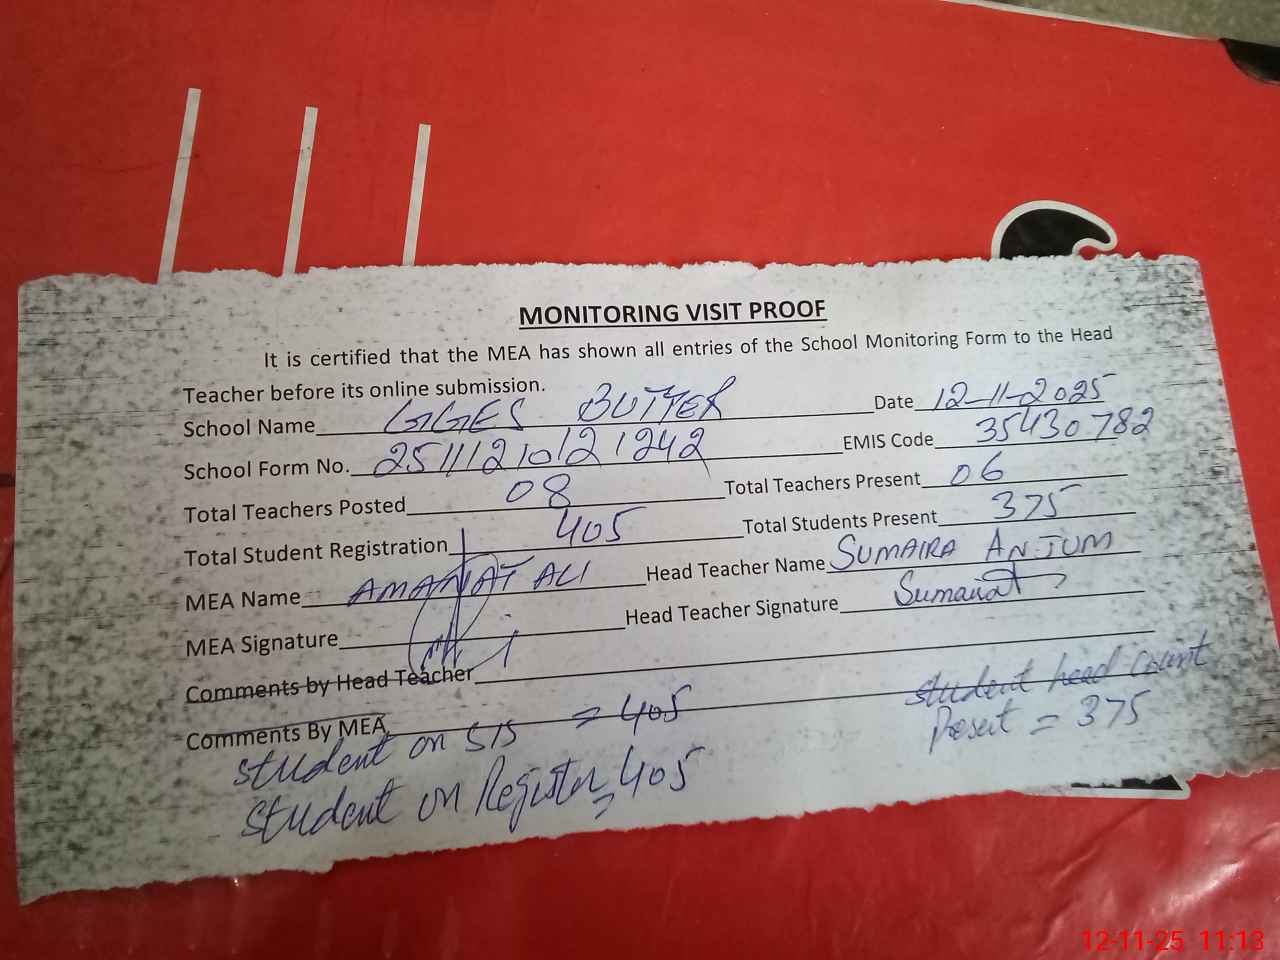 MONITORING VISIT PROOF
It is certified that the MEA has shown all entries of the School Monitoring Form to the Head
Teacher before its online submission.
School Name GGES BUTTER Date 12-11-2025
School Form No. 25111210121242 EMIS Code 35430782
Total Teachers Posted 08 Total Teachers Present 06
Total Student Registration 405 Total Students Present 375
MEA Name AMANAT ALI Head Teacher Name SUMAIRA ANJUM
MEA Signature Head Teacher Signature Sumaira
Comments by Head Teacher
Comments By MEA
student on SIS = 405 student head count
student on Register = 405 Present = 375
12-11-25 11:13